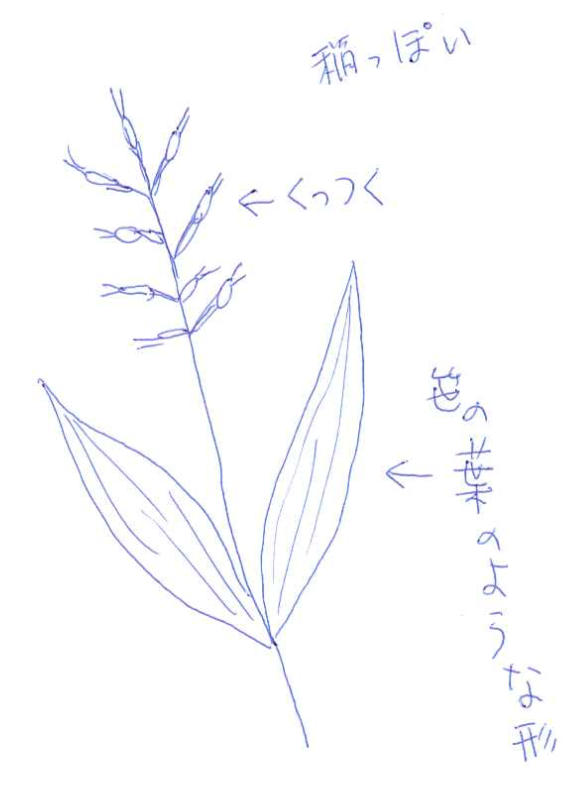 稲っぽい
←くっつく
←笹の葉のような形